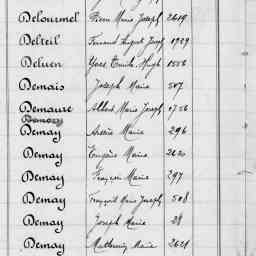 Delourmel Pierre Marie Joseph 2619
Delteil Fernand August Josep 1929
Deluen Yves Emile Hugh 1556
Demais Joseph Marie 507
Demaure Albert Marie Joseph 0756
Demay Arsène Marie 296
Demay Eugène Marie 2620
Demay François Marie 297
Demay François Marie Joseph 508
Demay Joseph Marie 28
Demay Mathurin Marie 2621